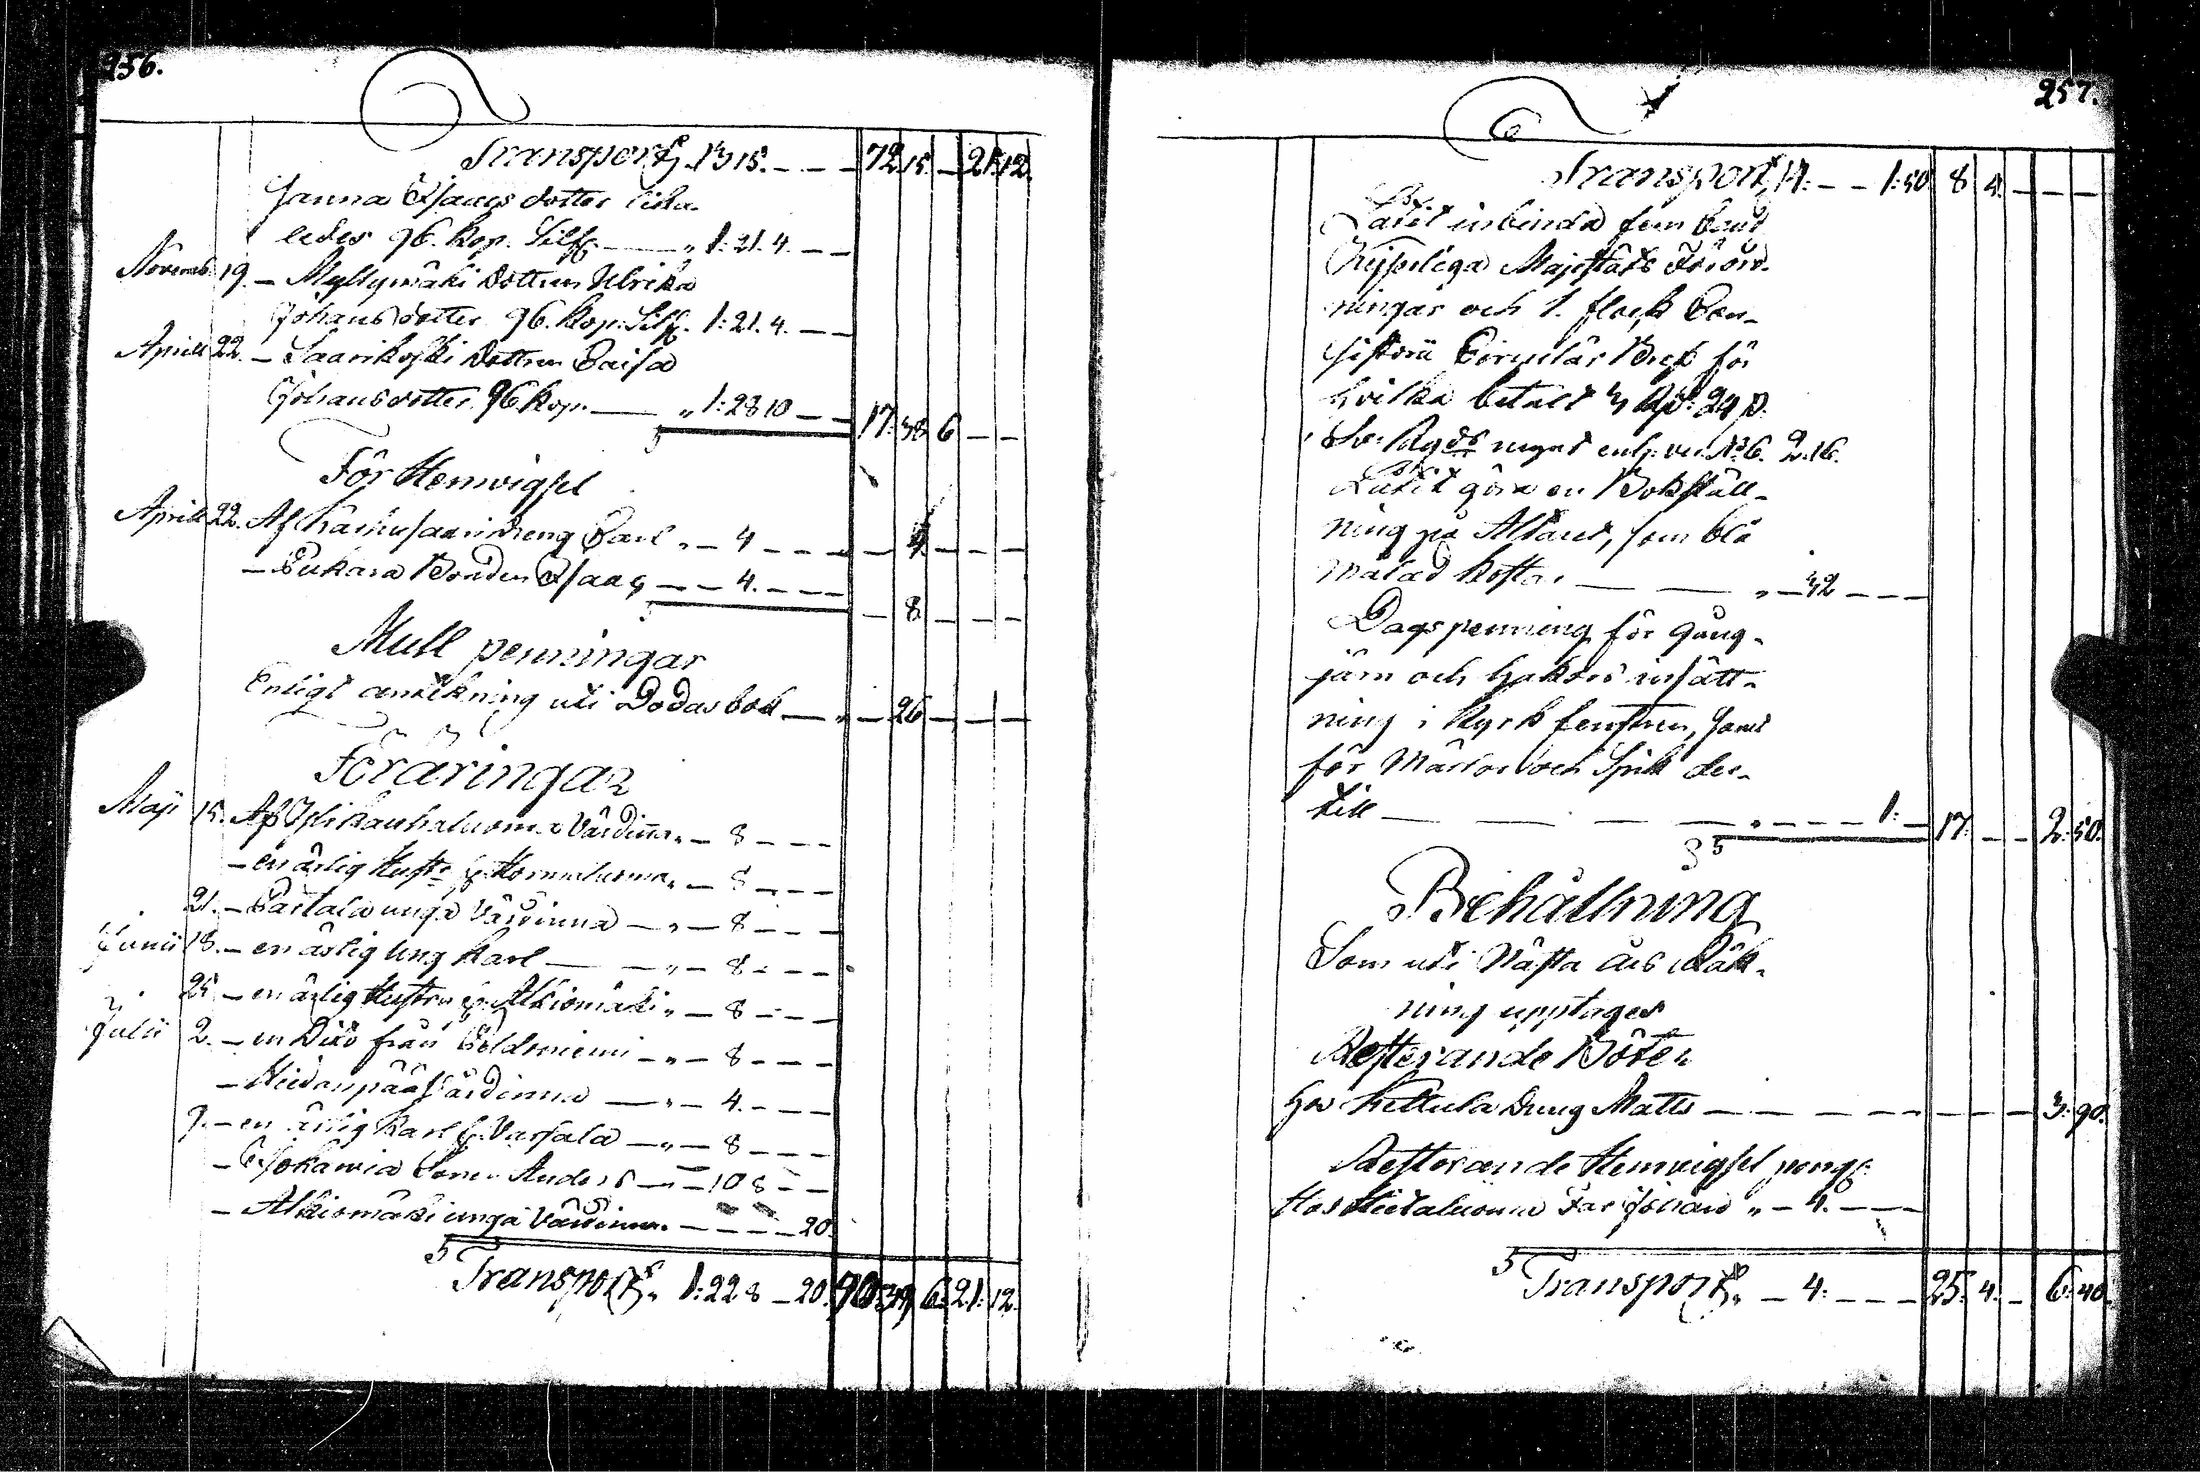 256.
Transport 13 15. - - - 72 15 - 21 12.
Janna Isaacs dotter lika
ledes 96. kop. Silfr — „ 1: 21. 4. - -
Novemb. 19. - Myllymäki Dottren Ulrika
Johans dotter 96. kop: Silfr. 1: 21. 4. - -
Aprill 22. - Saarikoski Dottren Caisa
Johansdotter 96 kop. — „ 1: 28 10 - - 17. 38 6 - -
För Hemvigsel
Aprill 22. Af dreng Carl „ - 4 - - - - 4 - - -
- Bonden Isaac - - 4. - - - - 8 - - -
Mull penningar
Enligt anteckning uti Dödas bok — „ - 26 - - -
Föräringar
Maji 15. Af Wärdinna „ - 8 - - -
- en ärlig Hust: fr. „ - 8 - - -
21. - unga Wärdinna - „ - 8 - - -
Junii 18. - en ärlig Ung Karl — - „ - 8 - - -
25 - en ärlig Hustru fr. Alkiomäki „ - 8 - - -
Julii 2. - en Dito från - „ - 8 - - -
- Hiedanpää Wärdinna — „ - 4. - - -
9. - en ärlig Karl fr. Varsala - „ - 8 - - -
- Sonen Anders - „ - 10 8 - -
- Alkiomäki unga Wärdinna - - - - 20.
Transport „ 1: 22 8 - 20. 90. 39 6. 21: 12.
257.
Transport 14: - - 1: 50 8 4. - - -
Låtit inbinda fem band
Kejserliga Majestäts Förord-
ningar och 1. flock Con-
sistorii Circulär Bref för
hvilka betalt 3 Rd: 24 p.
Sv: Rgds enl. ver. No 6. 2. 16.
Låtit göra en Bokställ-
ning på Altaret, som blå
målad kostar — — „ - 32 - - -
Dagspenning för Gång-
järn och hakors insätt-
ning i Kyrk fenstren, samt
för Märlor och Spik der-
till — — — — „ - - - - 1: - 17. - - 2: 50.
Behållning
Som uti Nästa års Räk-
ning upptages
Resterande Böter
hos Kettula Dreng Matts — - - - - - - - - 3: 90.
Resterande Hemvigsel peng:
Hos Hietaluoma Far Johan „ - 4. - - -
Transport „ - 4: - - - 25. 4. - 6: 40.